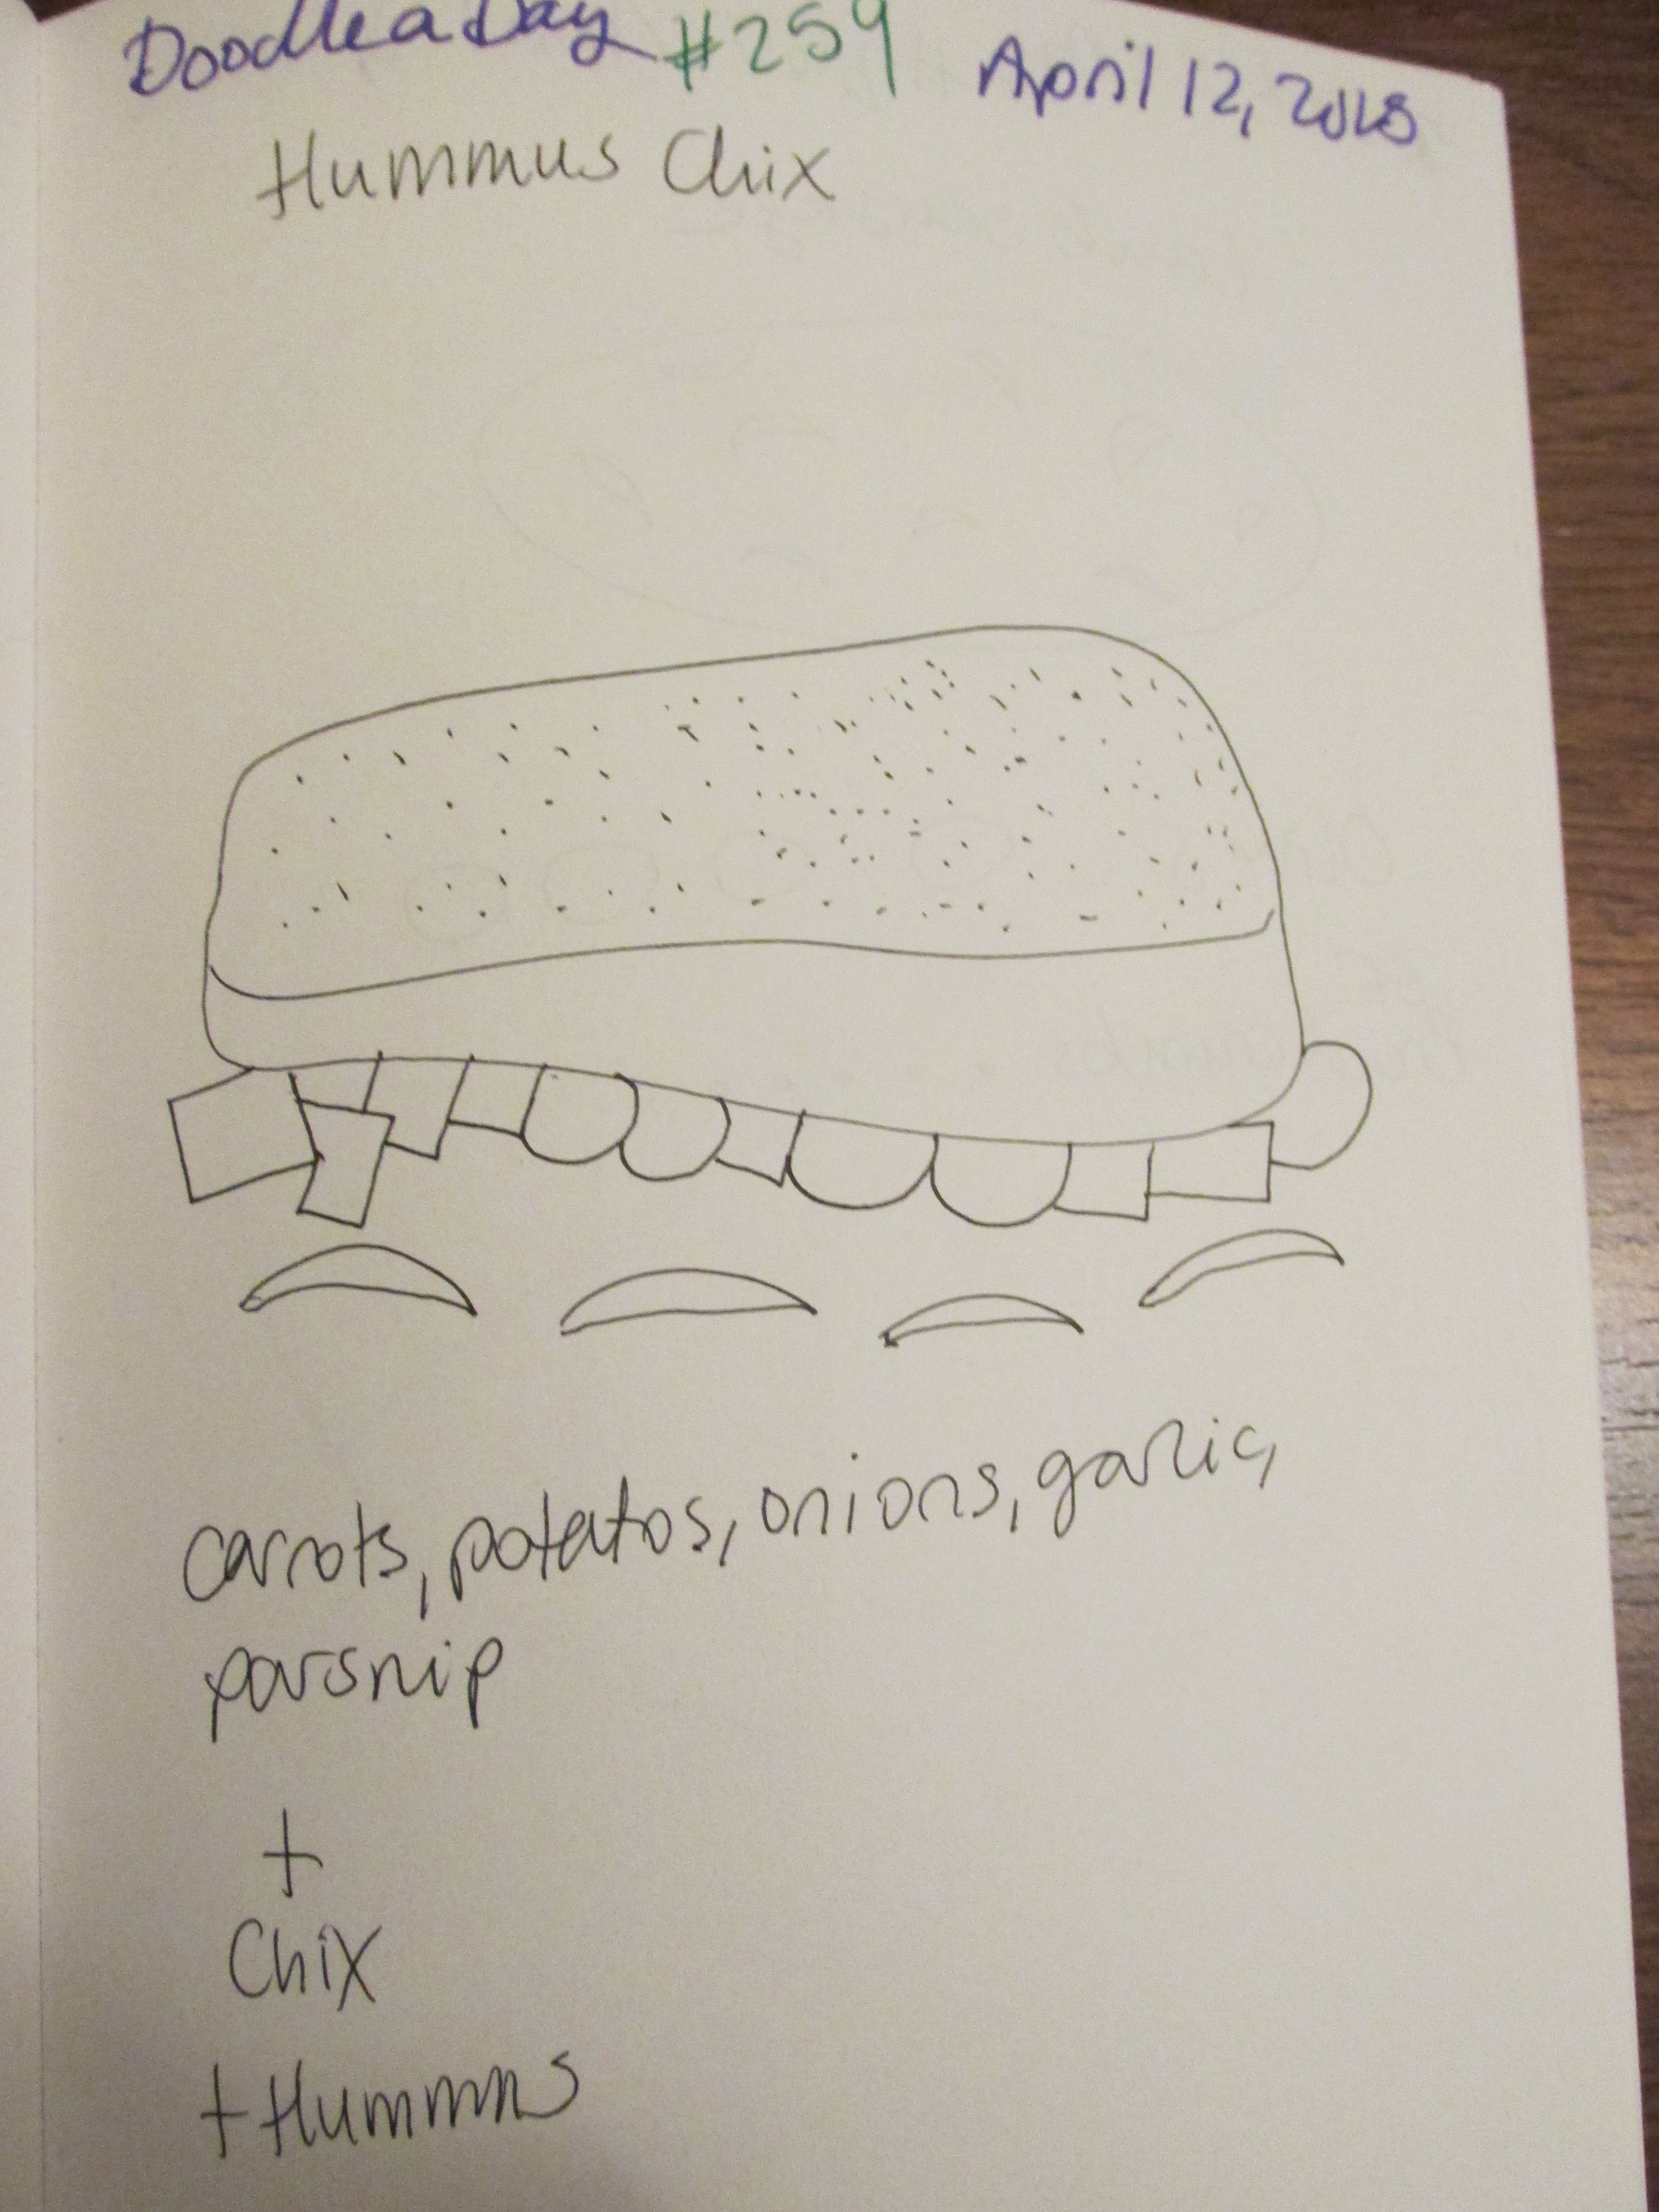 Doodle a Day #259 April 12, 2018
Hummus Chix
carrots, potatos, onions, garlic,
parsnip
+
Chix
+ Hummus